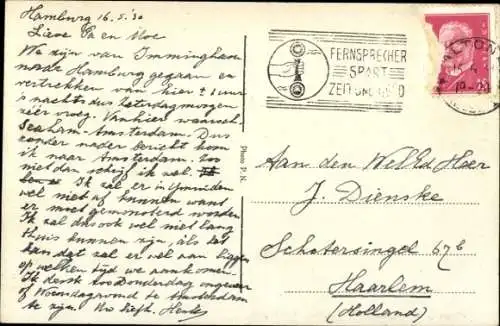 Hamburg 16.5.30
Lieve Pa en Moe
We zijn van Immingham
naar Hamburg gegaan en
vertrekken van hier 1 uur
's nachts dus Zaterdagmorgen
zéér vroeg. Van hier waarsch.
Seaham-Amsterdam. Dus
zonder nader bericht kom
ik naar Amsterdam. Zoo
niet dan schrijf ik wel.
Ik zal er in IJmuiden
wel niet af kunnen want
er moet gemonsterd worden
Ik zal dus ook wel niet lang
thuis kunnen zijn, als het
kan dat zal er wel aan liggen
op welken tijd we aankomen
Ik denk zoo Donderdag ongeveer
of Woensdagavond te Amsterdam
te zijn.
Photo P. N.
FERNSPRECHER
SPART
ZEIT UND GELD
ALTONA
15
Aan den WelEd Heer
J. Dienske
Schotersingel 67b
Haarlem
(Holland)